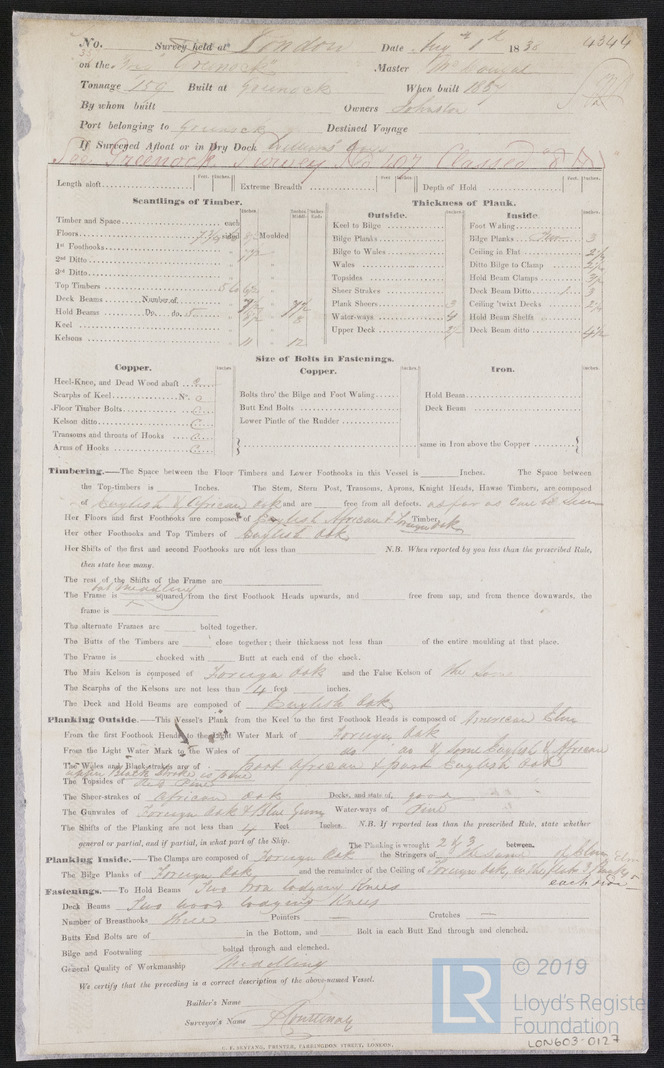 No. Survey held at London Date Aug 1st 1838 4344
on the Greenock Master
Tonnage 159 Built at Greenock When built 1837
By whom built Owners Johnston
Port belonging to Greenock Destined Voyage
If Surveyed Afloat or in Dry Dock
See Greenock Survey No 407 Classed
Length aloft Feet. Inches. Extreme Breadth Feet. Inches. Depth of Hold Feet. Inches.
Scantlings of Timber.
Inches. Inches. Middle Inches. Ends
Timber and Space each
Floors sided Moulded
1st Foothooks
2nd Ditto
3rd Ditto
Top Timbers
Deck Beams Number of
Hold Beams Do. do.
Keel
Kelsons 11 12
Thickness of Plank.
Outside.
Keel to Bilge
Bilge Planks
Bilge to Wales
Wales
Topsides
Sheer Strakes
Plank Sheers 3
Water-ways 4
Upper Deck
Inside
Foot Waling
Bilge Planks 3
Ceiling in Flat 2½
Ditto Bilge to Clamp
Hold Beam Clamps
Deck Beam Ditto 3
Ceiling 'twixt Decks
Hold Beam Shelfs
Deck Beam ditto
Size of Bolts in Fastenings.
Copper.
Heel-Knee, and Dead Wood abaft
Scarphs of Keel No.
Floor Timber Bolts
Kelson ditto
Transoms and throats of Hooks
Arms of Hooks
Copper.
Bolts thro' the Bilge and Foot Waling
Butt End Bolts
Lower Pintle of the Rudder
Iron.
Hold Beam
Deck Beam
same in Iron above the Copper
Timbering.—The Space between the Floor Timbers and Lower Foothooks in this Vessel is Inches. The Space between
the Top-timbers is Inches. The Stem, Stern Post, Transoms, Aprons, Knight Heads, Hawse Timbers, are composed
of English & African Oak and are free from all defects. as far as can be seen
Her Floors and first Foothooks are composed of English African & Foreign Oak Timber
Her other Foothooks and Top Timbers of English Oak
Her Shifts of the first and second Foothooks are not less than N.B. When reported by you less than the prescribed Rule,
then state how many.
The rest of the Shifts of the Frame are
but middling
The Frame is squared from the first Foothook Heads upwards, and free from sap, and from thence downwards, the
frame is
The alternate Frames are bolted together.
The Butts of the Timbers are close together; their thickness not less than of the entire moulding at that place.
The Frame is chocked with Butt at each end of the chock.
The Main Kelson is composed of Foreign Oak and the False Kelson of the same
The Scarphs of the Kelsons are not less than 4 feet inches.
The Deck and Hold Beams are composed of English Oak
Planking Outside.—This Vessel's Plank from the Keel to the first Foothook Heads is composed of American Elm
From the first Foothook Heads to the Light Water Mark of Foreign Oak
From the Light Water Mark to the Wales of do & some English & African
The Wales and Black-strakes are of part African & part English Oak
upper Black Strake is pine
The Topsides of Red Pine
The Sheer-strakes of African Oak Decks, and state of, good
The Gunwales of Foreign Oak & Blue Gum Water-ways of Pine
The Shifts of the Planking are not less than 4 Feet Inches. N.B. If reported less than the prescribed Rule, state whether
general or partial, and if partial, in what part of the Ship. The Planking is wrought 2 & 3 between.
Planking Inside.—The Clamps are composed of Foreign Oak the Stringers of the same
The Bilge Planks of Foreign Oak and the remainder of the Ceiling of Foreign Oak
Fastenings.—To Hold Beams Two Iron lodging Knees each
Deck Beams Two wood lodging Knees
Number of Breasthooks three Pointers — Crutches —
Butts End Bolts are of in the Bottom, and Bolt in each Butt End through and clenched.
Bilge and Footwaling bolted through and clenched.
General Quality of Workmanship Middling
We certify that the preceding is a correct description of the above-named Vessel.
Builder's Name
Surveyor's Name Courtenay
PRINTER, FARRINGDON STREET, LONDON.
LR © 2019
Lloyd's Registe
Foundation
LON603-0127